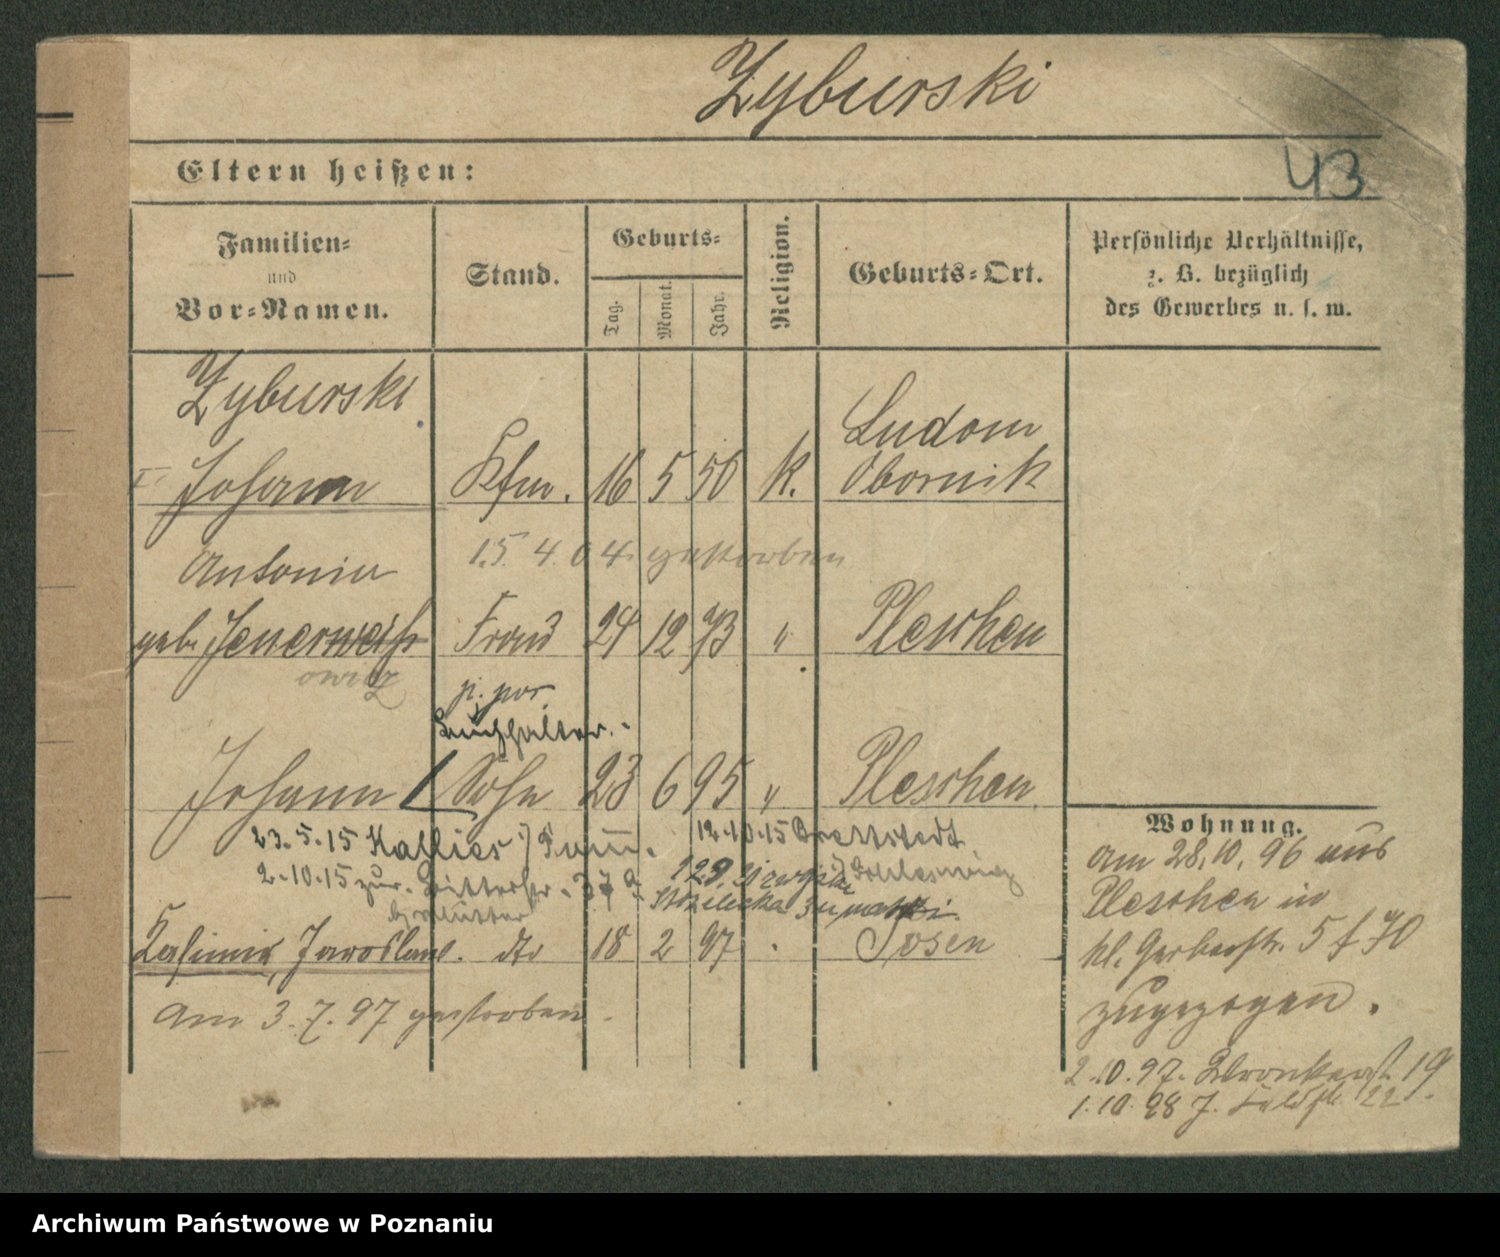 Zyburski
Eltern heißen:
43
Familien-
und
Vor-Namen.
Stand.
Geburts-
Tag.
Monat.
Jahr.
Religion.
Geburts-Ort.
Persönliche Verhältnisse,
z. B. bezüglich
des Gewerbes u. s. w.
Zyburski
Johann Kfm. 16 5 50 k. Ludom Obornik
15. 4. 04. gestorben
Antonia
geb. Jenerweiß Frau 24 12 73 " Pleschen
owicz
Buchhalter.
Johann Sohn 23 6 95 " Pleschen
23.5.15 Kallies 12.10.15 Bredstedt
2.10.15 zur. Ritterstr. 37 Schleswig
Kasimir, Jaroslaus. dto 18 2 97 Posen
am 3.7.97 gestorben.
Wohnung.
am 28.10.96 aus
Pleschen in
kl. Gerberstr. 5 f 70
zugezogen.
2.10.97. Wronkerst. 19
1.10.98 J. Feldst. 22.